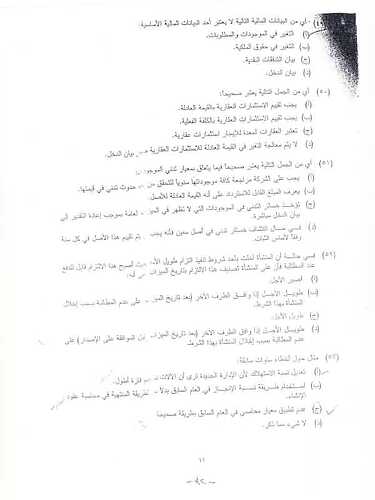 (٤٩) أي من البيانات المالية التالية لا يعتبر أحد البيانات المالية الأساسية:
أ) التغير في الموجودات والمطلوبات.
ب) التغير في حقوق الملكية.
ج) بيان التدفقات النقدية.
د) بيان الدخل.
(٥٠) أي من الجمل التالية يعتبر صحيحاً:
أ) يجب تقييم الاستثمارات العقارية بالقيمة العادلة.
ب) يجب تقييم الاستثمارات العقارية بالكلفة الفعلية.
ج) تعتبر العقارات المعدة للإيجار استثمارات عقارية.
د) لا يتم معالجة التغير في القيمة العادلة للاستثمارات العقارية بيان الدخل.
(٥١) أي من الجمل التالية يعتبر صحيحاً فيما يتعلق بمعيار تدني الموجود
أ) يجب على الشركة مراجعة كافة موجوداتها سنوياً للتحقق من حدوث تدني في قيمتها.
ب) يعرف المبلغ القابل للاسترداد على أنه القيمة العادلة للأصل.
ج) تؤخذ خسائر التدني في الموجودات التي لا تظهر في بموجب إعادة التقدير إلى
بيان الدخل مباشرة.
د) في حال اكتشاف خسائر تدني في أصل معين فإنه يجب تقييم هذا الأصل في كل سنة
وفقاً لأساس الثبات.
(٥٢) في حالة أن المنشأة أخلت بأحد شروط تنفيذ التزام طويل الأجل أصبح هذا الالتزام قابل للدفع
عند المطالبة فإن على المنشأة تصنيف هذا الالتزام بتاريخ الميزانية
أ) قصير الأجل.
ب) طويل الأجل إذا وافق الطرف الآخر (بعد تاريخ على عدم المطالبة بسبب إخلال
المنشأة بهذا الشرط.
ج) طويل الأجل.
د) طويل الأجل إذا وافق الطرف الآخر (بعد تاريخ الموافقة على الإصدار) على
عدم المطالبة بسبب إخلال المنشأة بهذا الشرط.
(٥٣) مثال حول أخطاء سنوات سابقة:
أ) تعديل نسبة الاستهلاك لأن الإدارة الجديدة ترى أن الآلات فترة أطول.
ب) استخدام طريقة نسبة الإنجاز في العام السابق بدلاً طريقة المنتهية في محاسبة عقود
الإنشاء.
ج) عدم تطبيق معيار محاسبي في العام السابق بطريقة صحيحة
د) لا شيء مما ذكر.